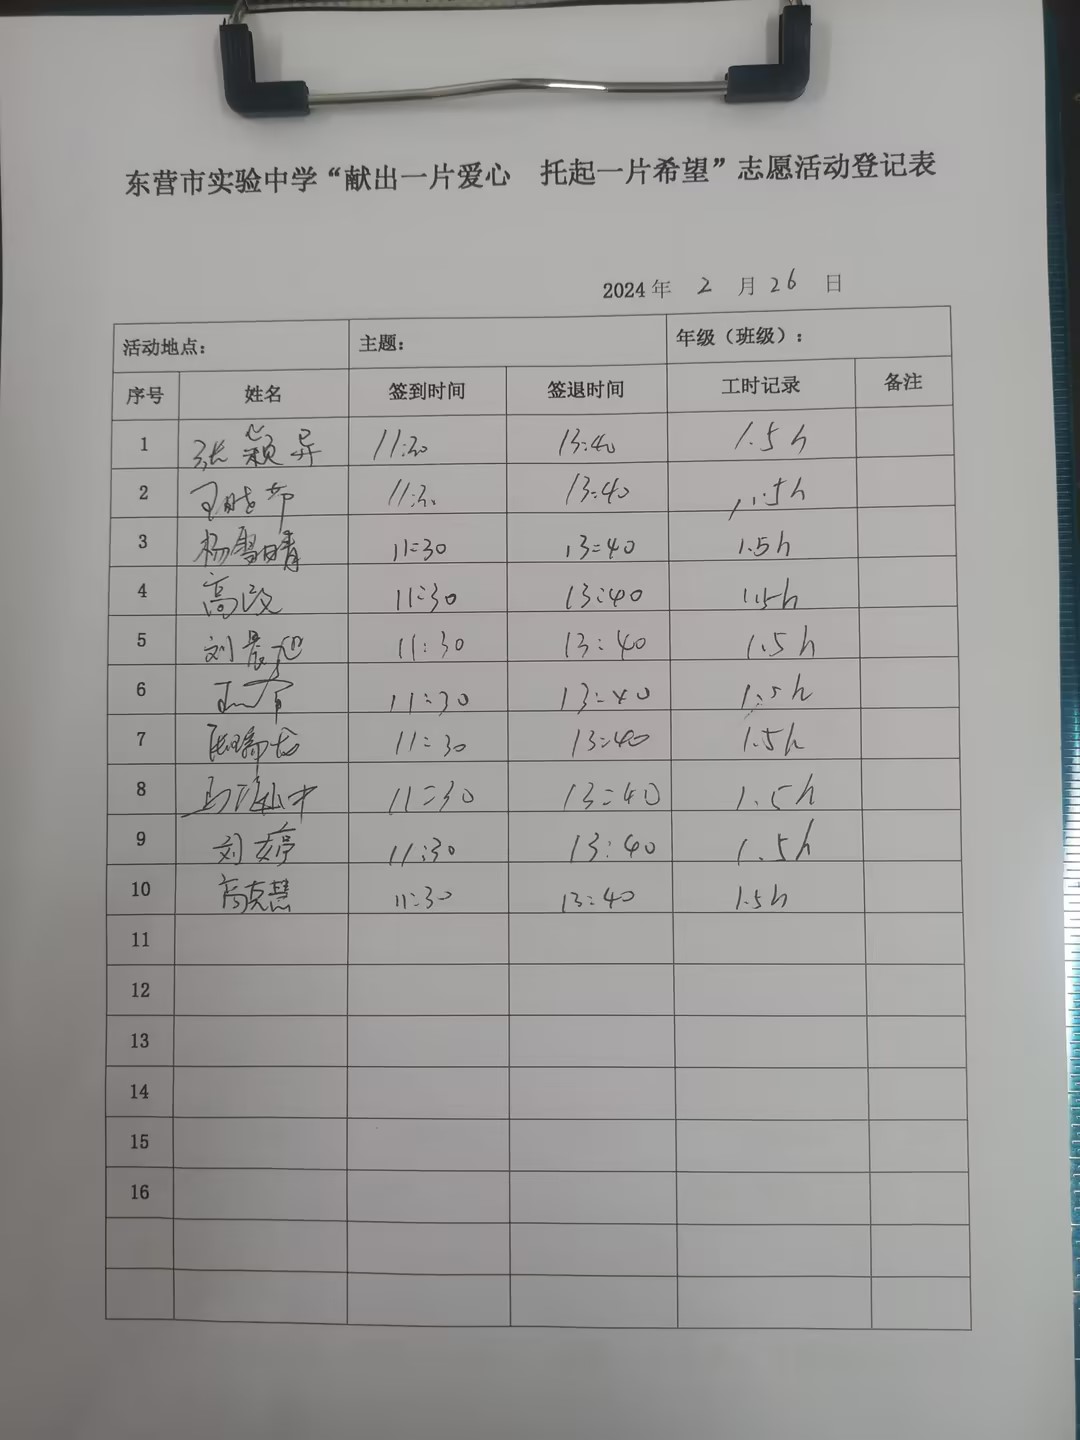 东营市实验中学“献出一片爱心 托起一片希望”志愿活动登记表
2024年 2 月 26 日
活动地点： 主题： 年级（班级）：
序号 姓名 签到时间 签退时间 工时记录 备注
1 张颖异 11:30 13:40 1.5h
2 王晓茹 11:30 13:40 1.5h
3 杨雪晴 11:30 13:40 1.5h
4 高政 11:30 13:40 1.5h
5 刘晨旭 11:30 13:40 1.5h
6 11:30 13:40 1.5h
7 11:30 13:40 1.5h
8 11:30 13:40 1.5h
9 刘婷 11:30 13:40 1.5h
10 高克慧 11:30 13:40 1.5h
11
12
13
14
15
16